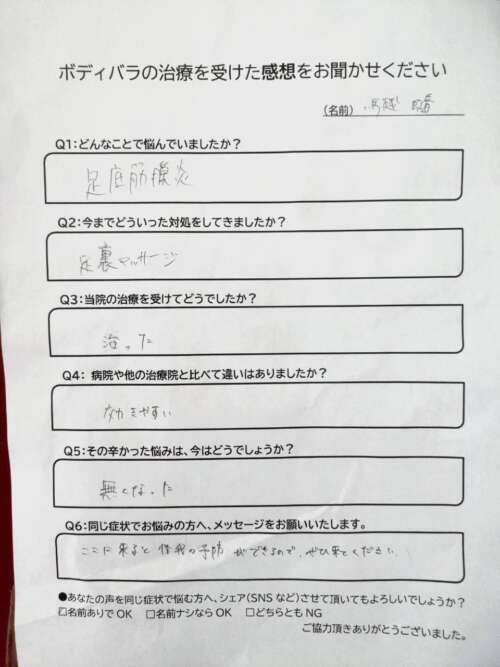 ボディバラの治療を受けた感想をお聞かせください
(名前) 馬越
Q1:どんなことで悩んでいましたか？
足底筋膜炎
Q2:今までどういった対処をしてきましたか？
足裏マッサージ
Q3:当院の治療を受けてどうでしたか？
治った
Q4: 病院や他の治療院と比べて違いはありましたか？
効きやすい
Q5:その辛かった悩みは、今はどうでしょうか？
無くなった
Q6:同じ症状でお悩みの方へ、メッセージをお願いいたします。
ここに来ると怪我の予防ができるので、ぜひ来てください
●あなたの声を同じ症状で悩む方へ、シェア(SNSなど)させて頂いてもよろしいでしょうか？
☐名前ありでOK ☐名前ナシならOK ☐どちらともNG
ご協力頂きありがとうございました。